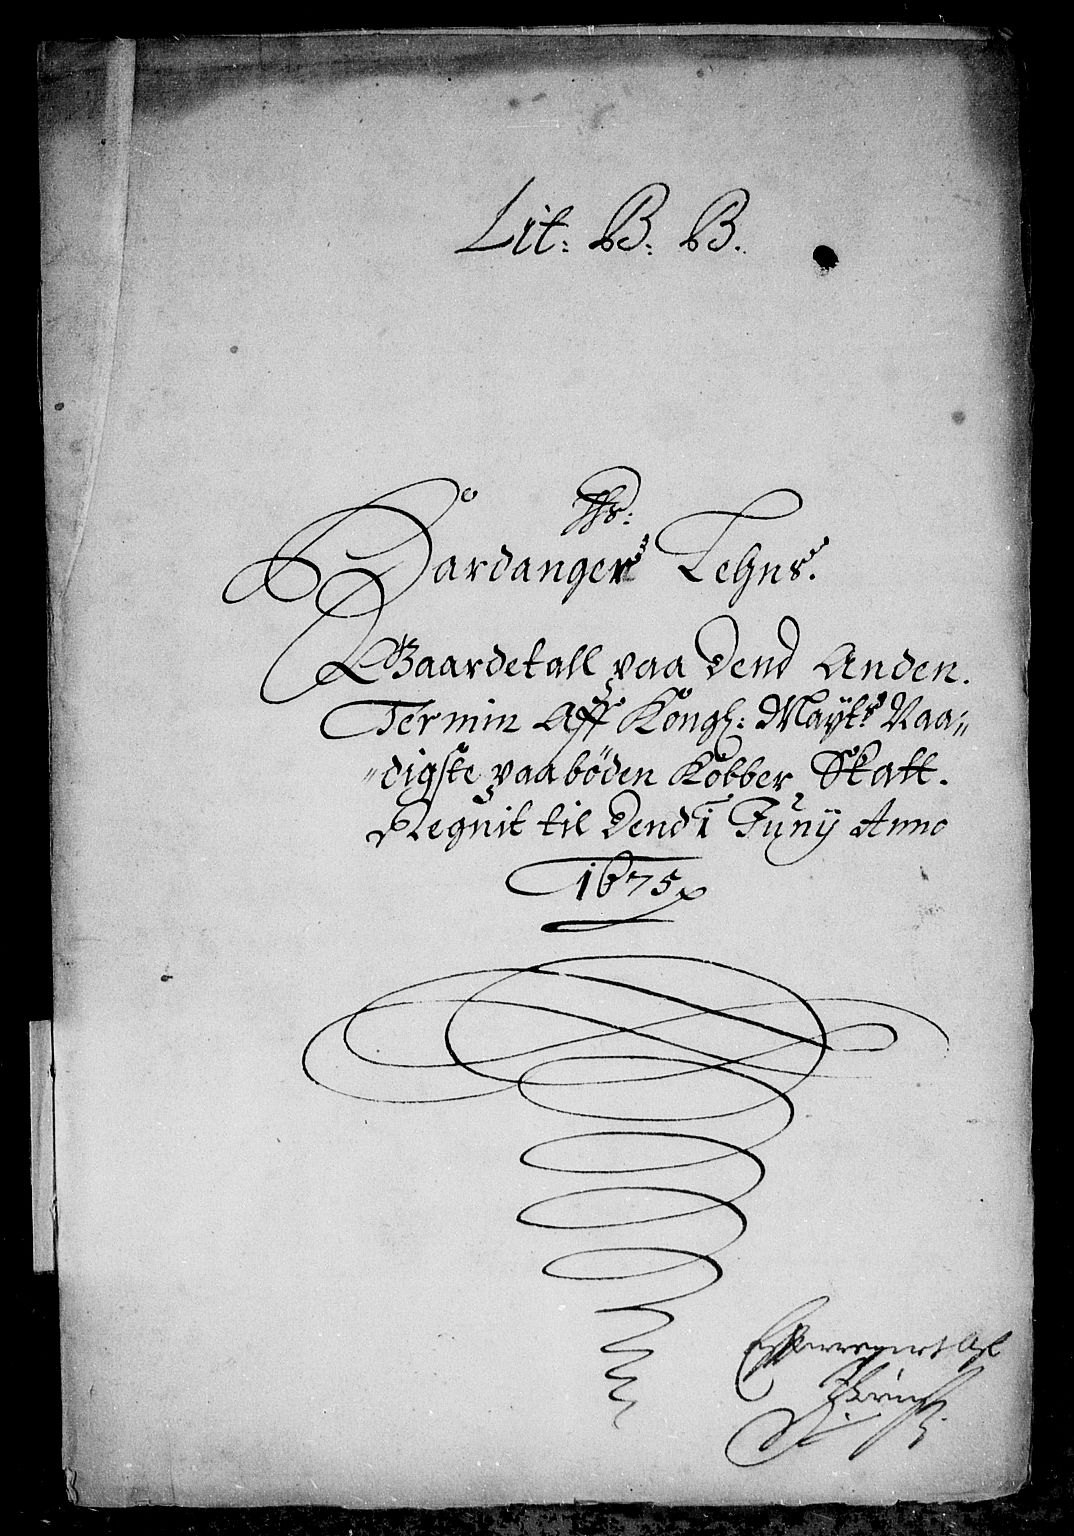 Lit: B: B.
Hardanger Lehns.
Gaardetall paa Dend Anden.
Termin Aff Kongl: Maytz Naa„
„digste paabőden Kobber Skatt.
Regnit til Dend 1 Junÿ Anno
1675